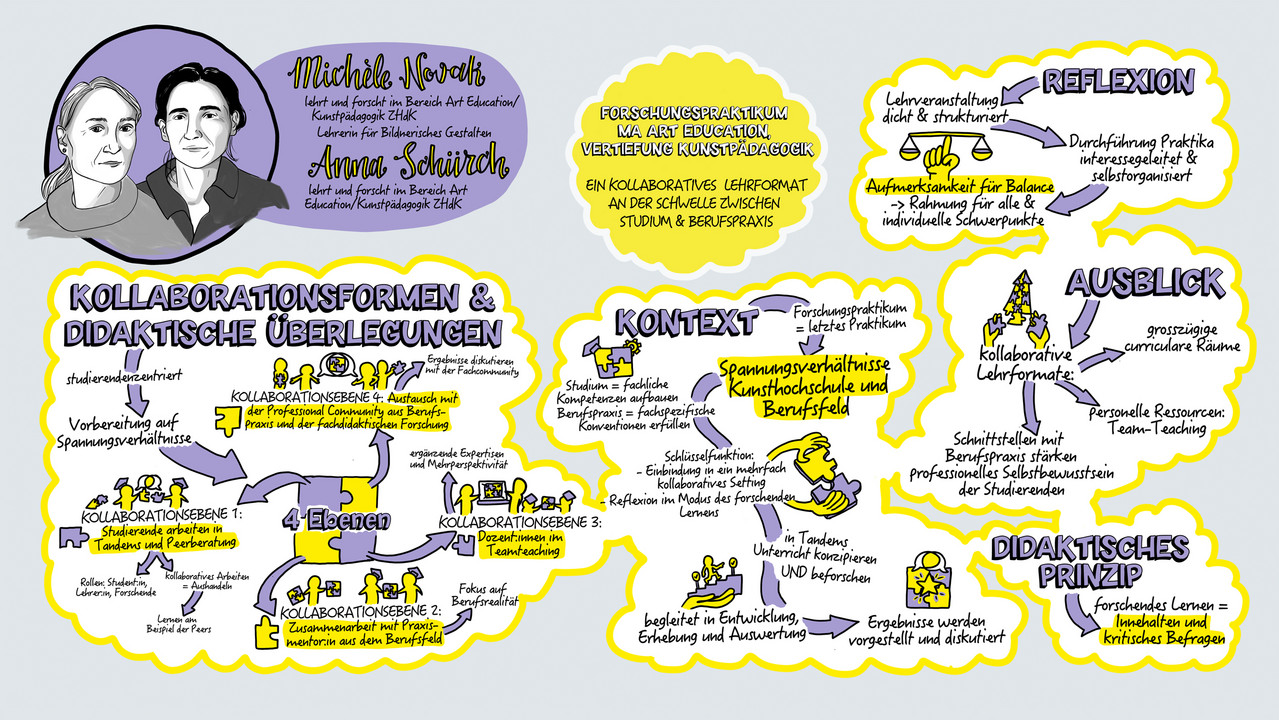 Michèle Novak
lehrt und forscht im Bereich Art Education/
Kunstpädagogik ZHdK
Lehrerin für Bildnerisches Gestalten
Anna Schürch
lehrt und forscht im Bereich Art
Education/Kunstpädagogik ZHdK
FORSCHUNGSPRAKTIKUM
MA ART EDUCATION,
VERTIEFUNG KUNSTPÄDAGOGIK
EIN KOLLABORATIVES LEHRFORMAT
AN DER SCHWELLE ZWISCHEN
STUDIUM & BERUFSPRAXIS
KOLLABORATIONSFORMEN &
DIDAKTISCHE ÜBERLEGUNGEN
studierendenzentriert
Vorbereitung auf
Spannungsverhältnisse
4 Ebenen
KOLLABORATIONSEBENE 1:
Studierende arbeiten in
Tandems und Peerberatung
Rollen: Student:in,
Lehrer:in, Forschende
kollaboratives Arbeiten
= Aushandeln
Lernen am
Beispiel der Peers
KOLLABORATIONSEBENE 2:
Zusammenarbeit mit Praxis-
mentor:in aus dem Berufsfeld
Fokus auf
Berufsrealität
KOLLABORATIONSEBENE 3:
Dozent:innen im
Teamteaching
ergänzende Expertisen
und Mehrperspektivität
KOLLABORATIONSEBENE 4: Austausch mit
der Professional Community aus Berufs-
praxis und der fachdidaktischen Forschung
Ergebnisse diskutieren
mit der Fachcommunity
KONTEXT
Forschungspraktikum
= letztes Praktikum
Spannungsverhältnisse
Kunsthochschule und
Berufsfeld
Studium = fachliche
Kompetenzen aufbauen
Berufspraxis = fachspezifische
Konventionen erfüllen
Schlüsselfunktion:
- Einbindung in ein mehrfach
kollaboratives Setting
- Reflexion im Modus des forschenden
Lernens
in Tandems
Unterricht konzipieren
UND beforschen
begleitet in Entwicklung,
Erhebung und Auswertung
Ergebnisse werden
vorgestellt und diskutiert
REFLEXION
Lehrveranstaltung
dicht & strukturiert
Durchführung Praktika
interessegeleitet &
selbstorganisiert
Aufmerksamkeit für Balance
-> Rahmung für alle &
individuelle Schwerpunkte
AUSBLICK
kollaborative
Lehrformate:
grosszügige
curriculare Räume
personelle Ressourcen:
Team-Teaching
Schnittstellen mit
Berufspraxis stärken
professionelles Selbstbewusstsein
der Studierenden
DIDAKTISCHES
PRINZIP
forschendes Lernen =
Innehalten und
kritisches Befragen